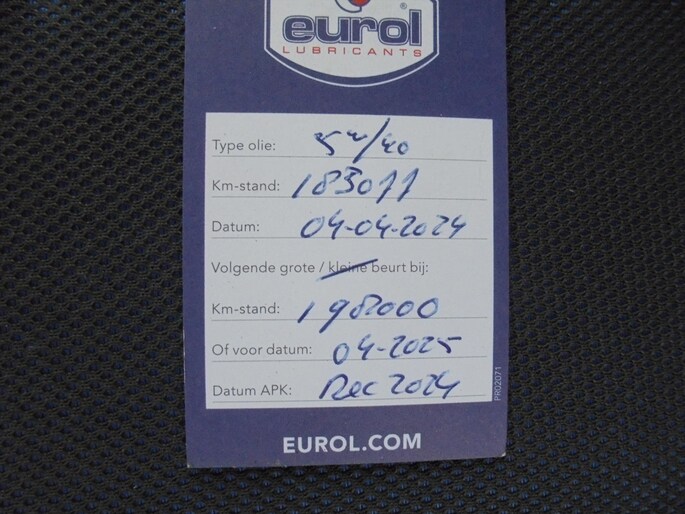 eurol®
LUBRICANTS
Type olie: 5w/40
Km-stand: 183011
Datum: 04-04-2024
Volgende grote / kleine beurt bij:
Km-stand: 198000
Of voor datum: 04-2025
Datum APK: Dec 2024
PR02071
EUROL.COM